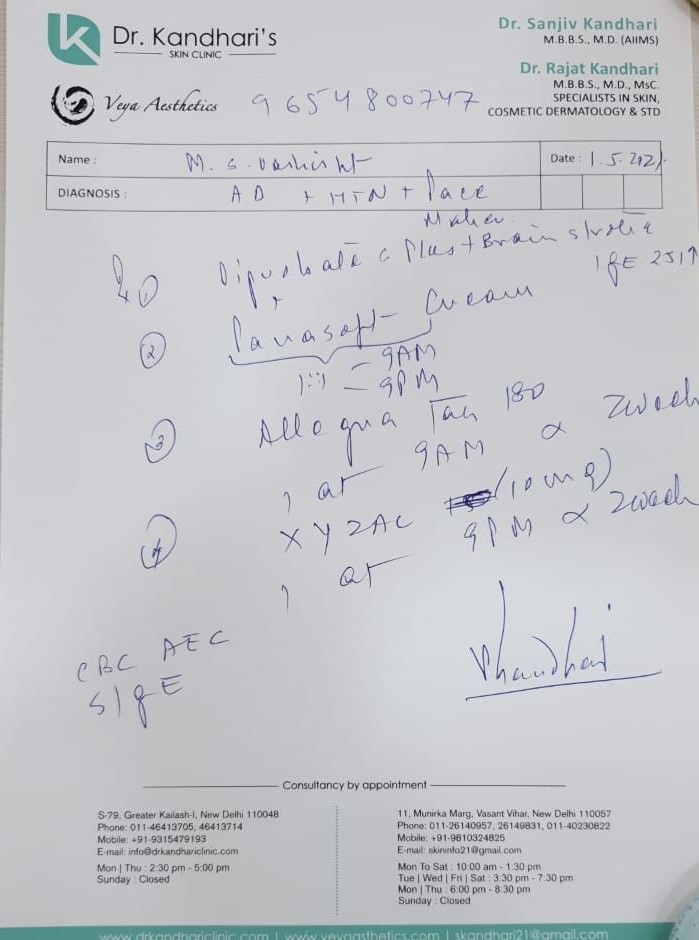 Dr. Kandhari's
SKIN CLINIC
Veya Aesthetics
9654800747
Dr. Sanjiv Kandhari
M.B.B.S., M.D. (AIIMS)
Dr. Rajat Kandhari
M.B.B.S., M.D., MSC.
SPECIALISTS IN SKIN,
COSMETIC DERMATOLOGY & STD
Name : M. S. Vashisht
Date : 1.5.2021
DIAGNOSIS : AD + HTN + Pace
Maker
① c Plus + Brain stroke
IgE 251↑
② Panasoft Cream
1:1 = 9AM
= 9PM
③ Allegra Tab 180
1 at 9AM x 2week
④ XYZAL (10mg)
1 at 9PM x 2week
CBC AEC
S IgE
Consultancy by appointment
S-79, Greater Kailash-I, New Delhi 110048
Phone: 011-46413705, 46413714
Mobile: +91-9315479193
E-mail: info@drkandhariclinic.com
Mon | Thu : 2:30 pm - 5:00 pm
Sunday : Closed
11, Munirka Marg, Vasant Vihar, New Delhi 110057
Phone: 011-26140957, 26149831, 011-40230822
Mobile: +91-9810324825
E-mail: skininfo21@gmail.com
Mon To Sat : 10:00 am - 1:30 pm
Tue | Wed | Fri | Sat : 3:30 pm - 7:30 pm
Mon | Thu : 6:00 pm - 8:30 pm
Sunday : Closed
www.drkandhariclinic.com | www.veyaaesthetics.com | skandhari21@gmail.com